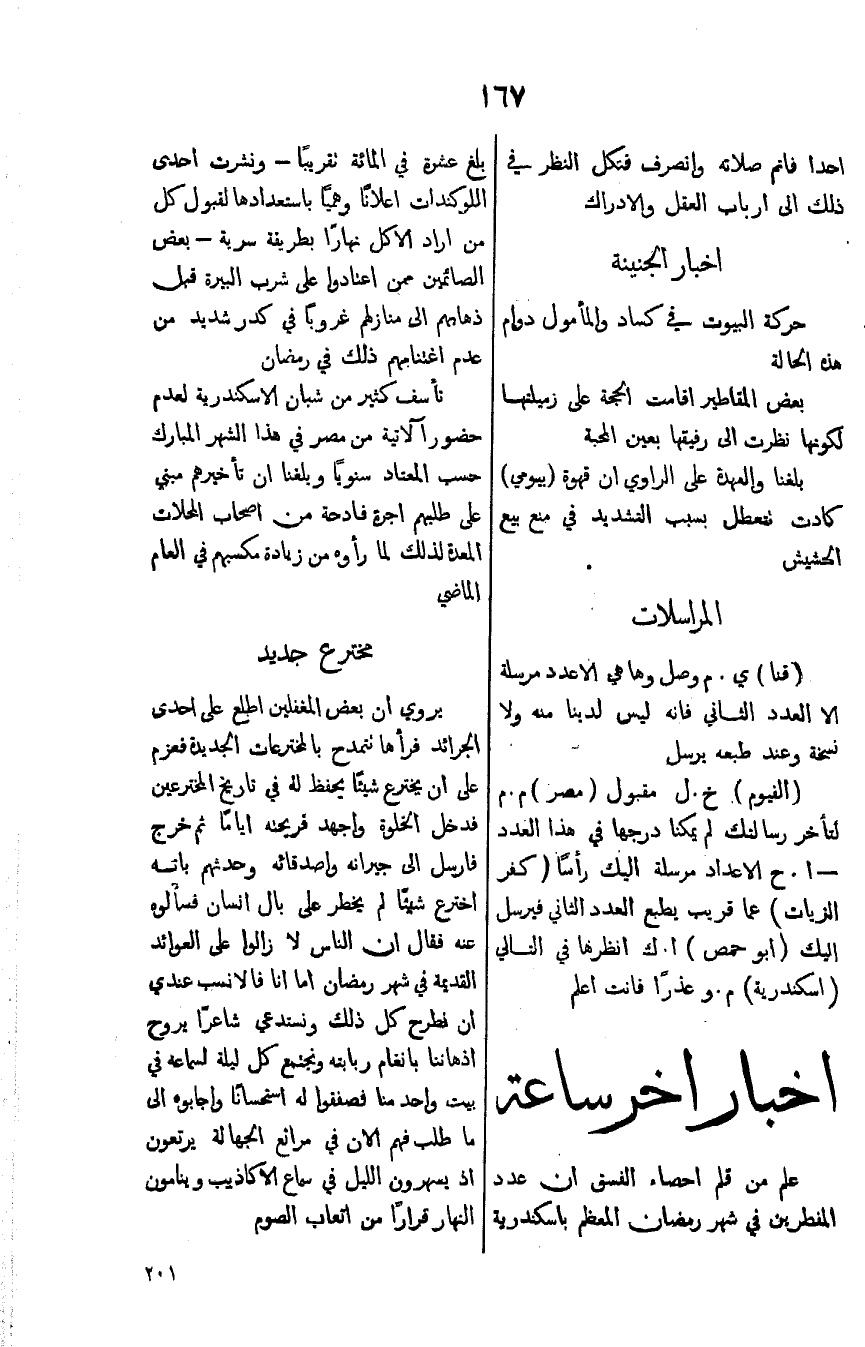 ١٦٧
احدا فاتم صلاته وانصرف فنكل النظر في
ذلك الى ارباب العقل والادراك
اخبار الجنينة
حركة البيوت في كساد والمأمول دوام
هذه الحالة
بعض المقاطير اقامت الحجة على زميلتها
لكونها نظرت الى رفيقها بعين المحبة
بلغنا والعهدة على الراوي ان قهوة (بيومي)
كادت تتعطل بسبب التشديد في منع بيع
الحشيش
المراسلات
(قنا) ي . م وصل وها هي الاعدد مرسلة
الا العدد الثاني فانه ليس لدينا منه ولا
نسخة وعند طبعه يرسل
(الفيوم) خ.ل مقبول (مصر) م.م
لتأخر رسالتك لم يمكنا درجها في هذا العدد
— ا . ح الاعداد مرسلة اليك رأسًا (كفر
الزيات) عما قريب يطبع العدد الثاني فيرسل
اليك (ابو حمص) ا.ك انظرها في التالي
(اسكندرية) م.و عذرًا فانت اعلم
اخبار اخر ساعة
علم من قلم احصاء الفسق ان عدد
المفطرين في شهر رمضان المعظم باسكندرية
بلغ عشرة في المائة تقريبًا — ونشرت احدى
اللوكندات اعلانًا وهميًا باستعدادها لقبول كل
من اراد الاكل نهارًا بطريقة سرية — بعض
الصائمين ممن اعتادوا على شرب البيرة قبل
ذهابهم الى منازلهم غروبًا في كدر شديد من
عدم اغتنامهم ذلك في رمضان
تأسف كثير من شبان الاسكندرية لعدم
حضور آلاتية من مصر في هذا الشهر المبارك
حسب المعتاد سنويًا وبلغنا ان تأخيرهم مبني
على طلبهم اجرة فادحة من اصحاب المحلات
المعدة لذلك لما رأوه من زيادة مكسبهم في العام
الماضي
مخترع جديد
يروي ان بعض المغفلين اطلع على احدى
الجرائد فرأها تتمدح بالمخترعات الجديدة فعزم
على ان يخترع شيئًا يحفظ له في تاريخ المخترعين
فدخل الخلوة واجهد قريحته ايامًا ثم خرج
فارسل الى جيرانه واصدقائه وحدثهم بانه
اخترع شيئًا لم يخطر على بال انسان فسألوه
عنه فقال ان الناس لا زالوا على العوائد
القديمة في شهر رمضان اما انا فالانسب عندي
ان نطرح كل ذلك ونستدعي شاعرًا يروح
اذهاننا بانغام ربابته ونجتمع كل ليلة لسماعه في
بيت واحد منا فصفقوا له استحسانًا واجابوه الى
ما طلب فهم الان في مراتع الجهالة يرتعون
اذ يسهرون الليل في سماع الاكاذيب وينامون
النهار فرارًا من اتعاب الصوم
٢٠١